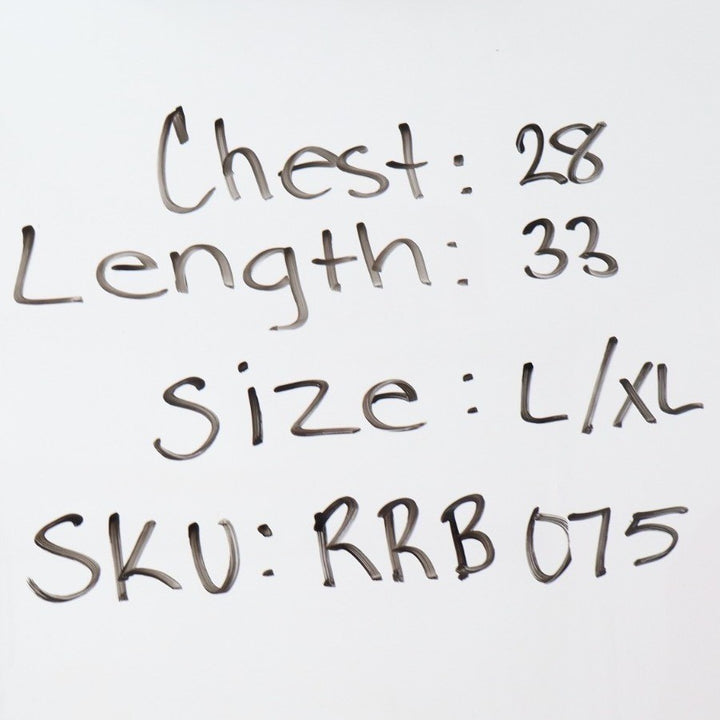 Chest: 28
Length: 33
Size: L/XL
SKU: RRB 075